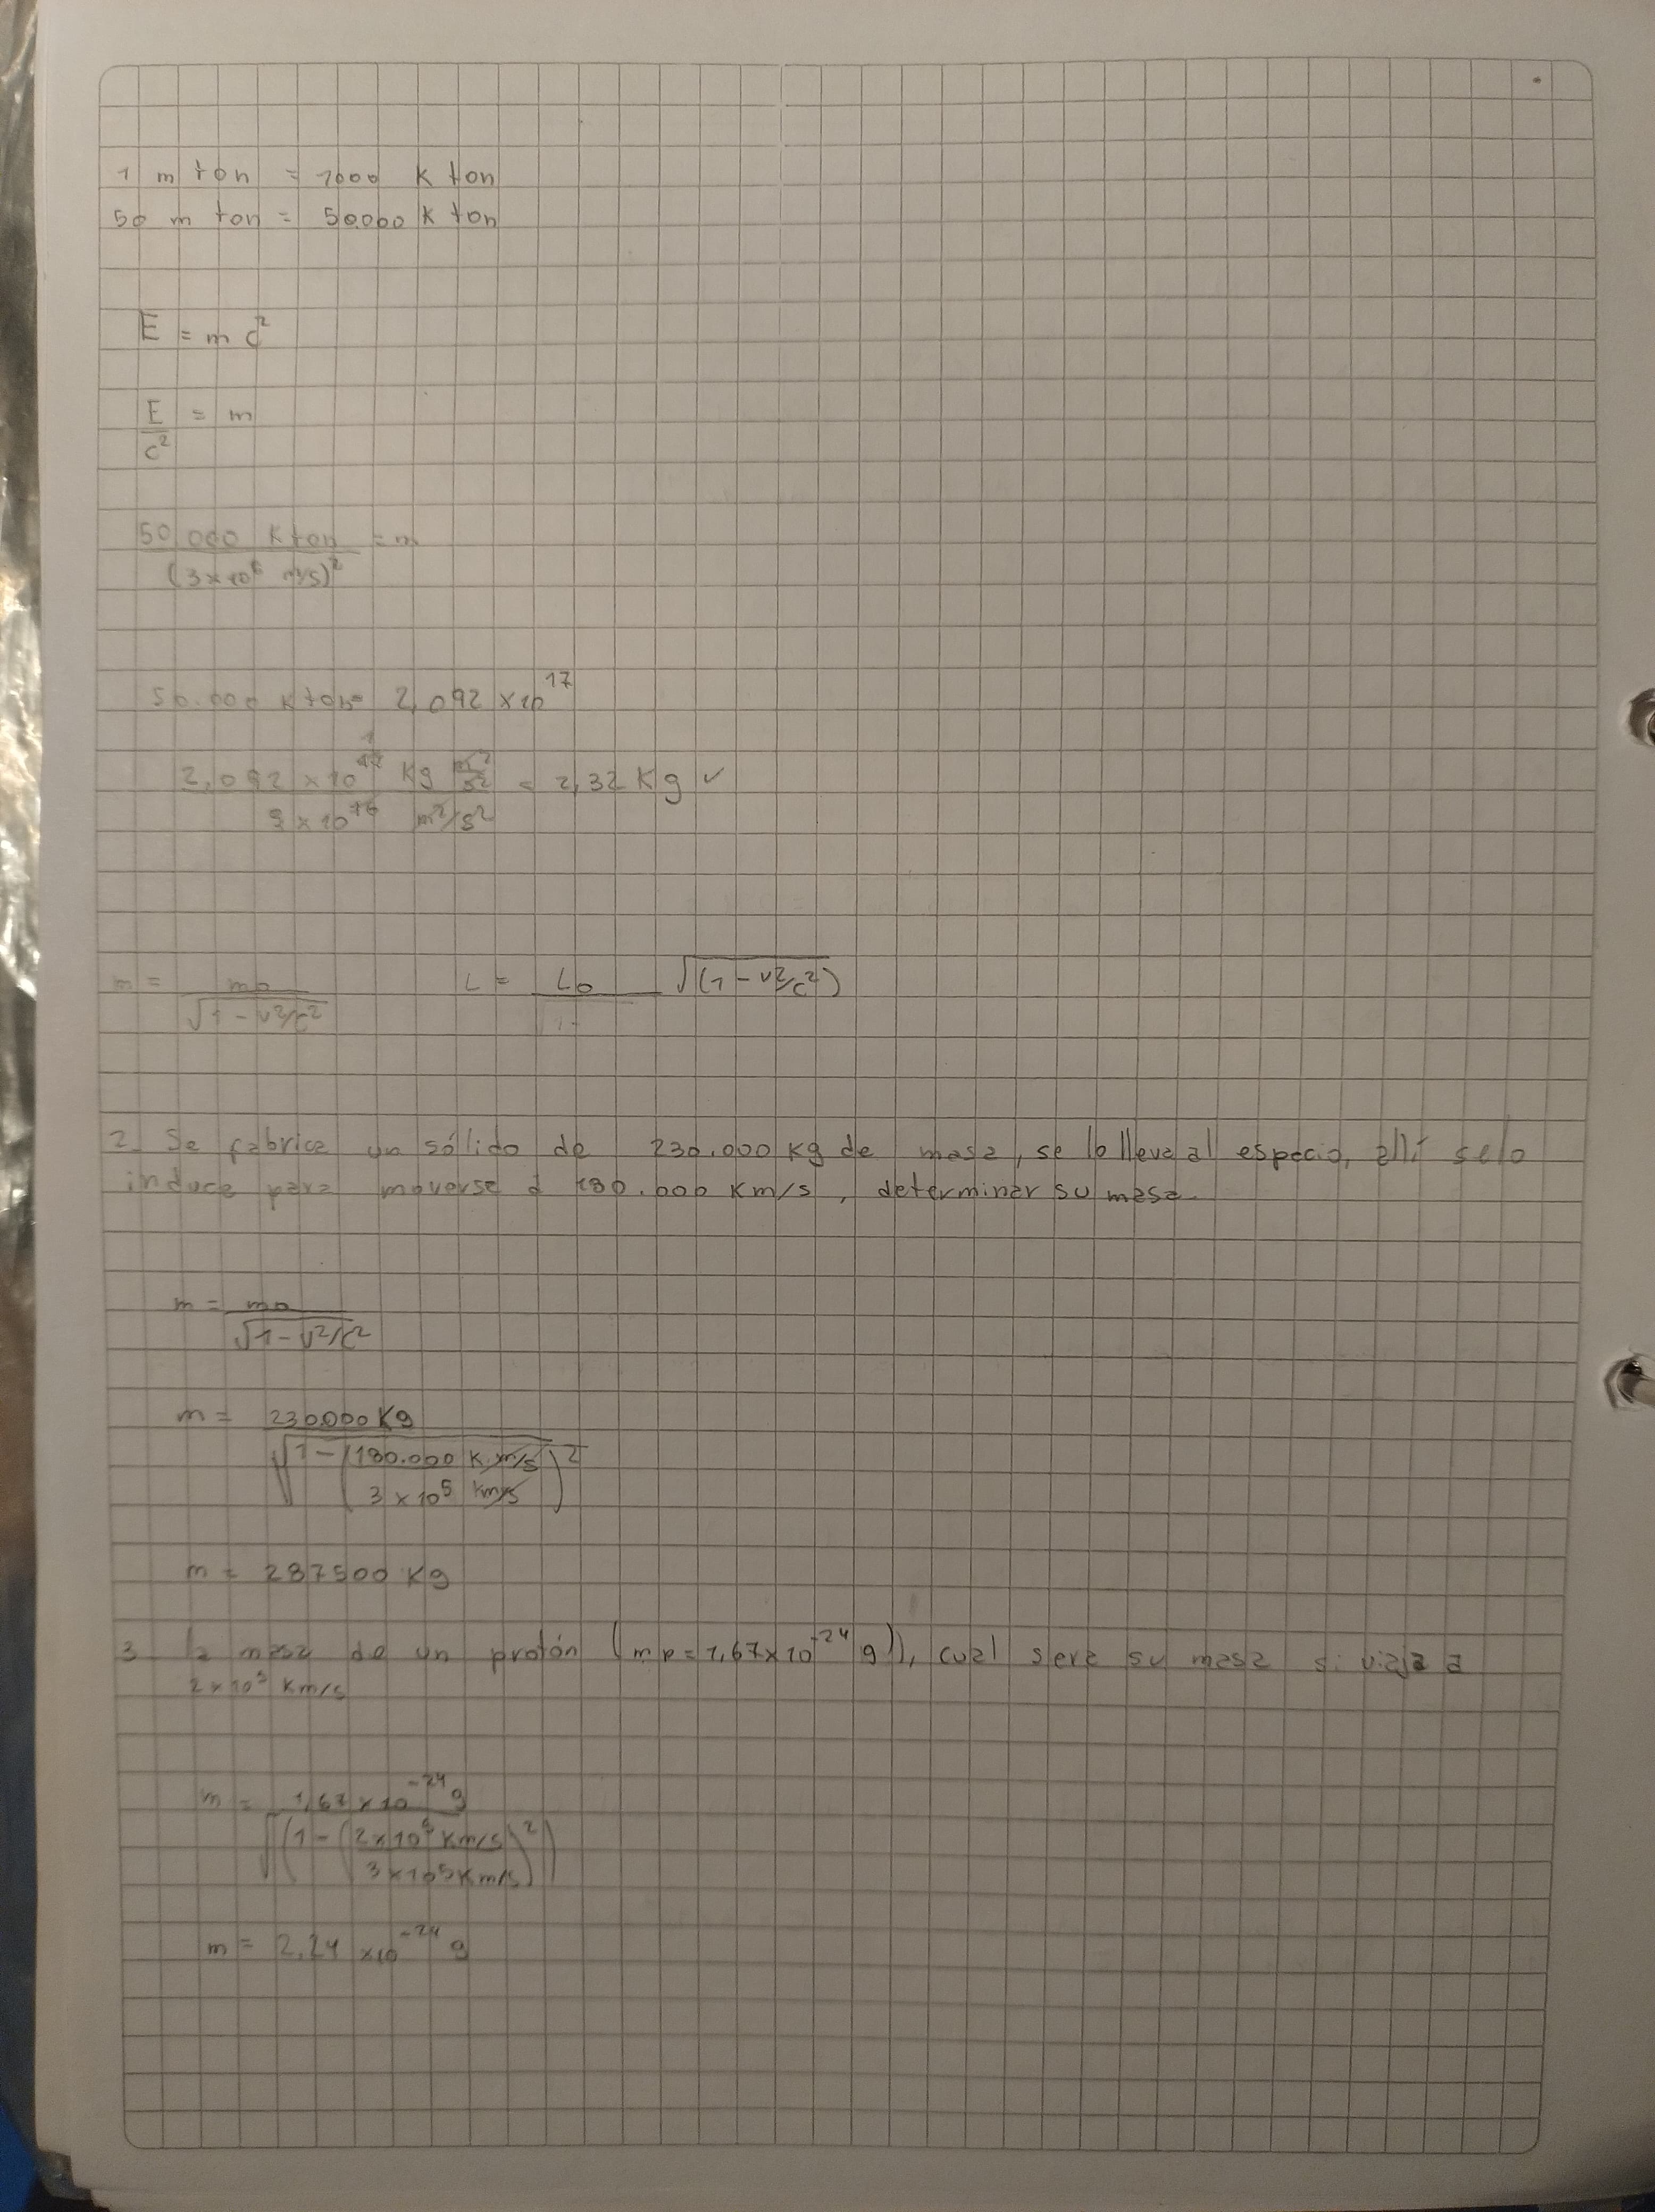 1 m ton = 1000 K ton
50 m ton = 50.000 K ton
E = m c²
E/c² = m
50.000 K ton / (3x10⁸ m/s)² = m
50.000 K ton = 2,092 x10¹⁷
2,092 x 10¹⁷ Kg m²/s² / 9 x 10¹⁶ m²/s² = 2,32 Kg ✓
m = mo / √1 - v²/c²    L = Lo √(1 - v²/c²)
2. Se fabrica un sólido de 230.000 Kg de masa, se lo lleva al espacio, allí se lo
induce para moverse a 180.000 Km/s, determinar su masa.
m = mo / √1 - v²/c²
m = 230.000 Kg / √1 - (180.000 K m/s / 3 x 10⁵ km/s)²
m = 287500 Kg
3. la masa de un protón (mp = 1,67x10⁻²⁴ g), cual sera su masa si viaja a
2x10⁵ Km/s
m = 1,67 x 10⁻²⁴ g / √(1 - (2x10⁵ Km/s / 3x10⁵ Km/s)²)
m = 2,24 x10⁻²⁴ g